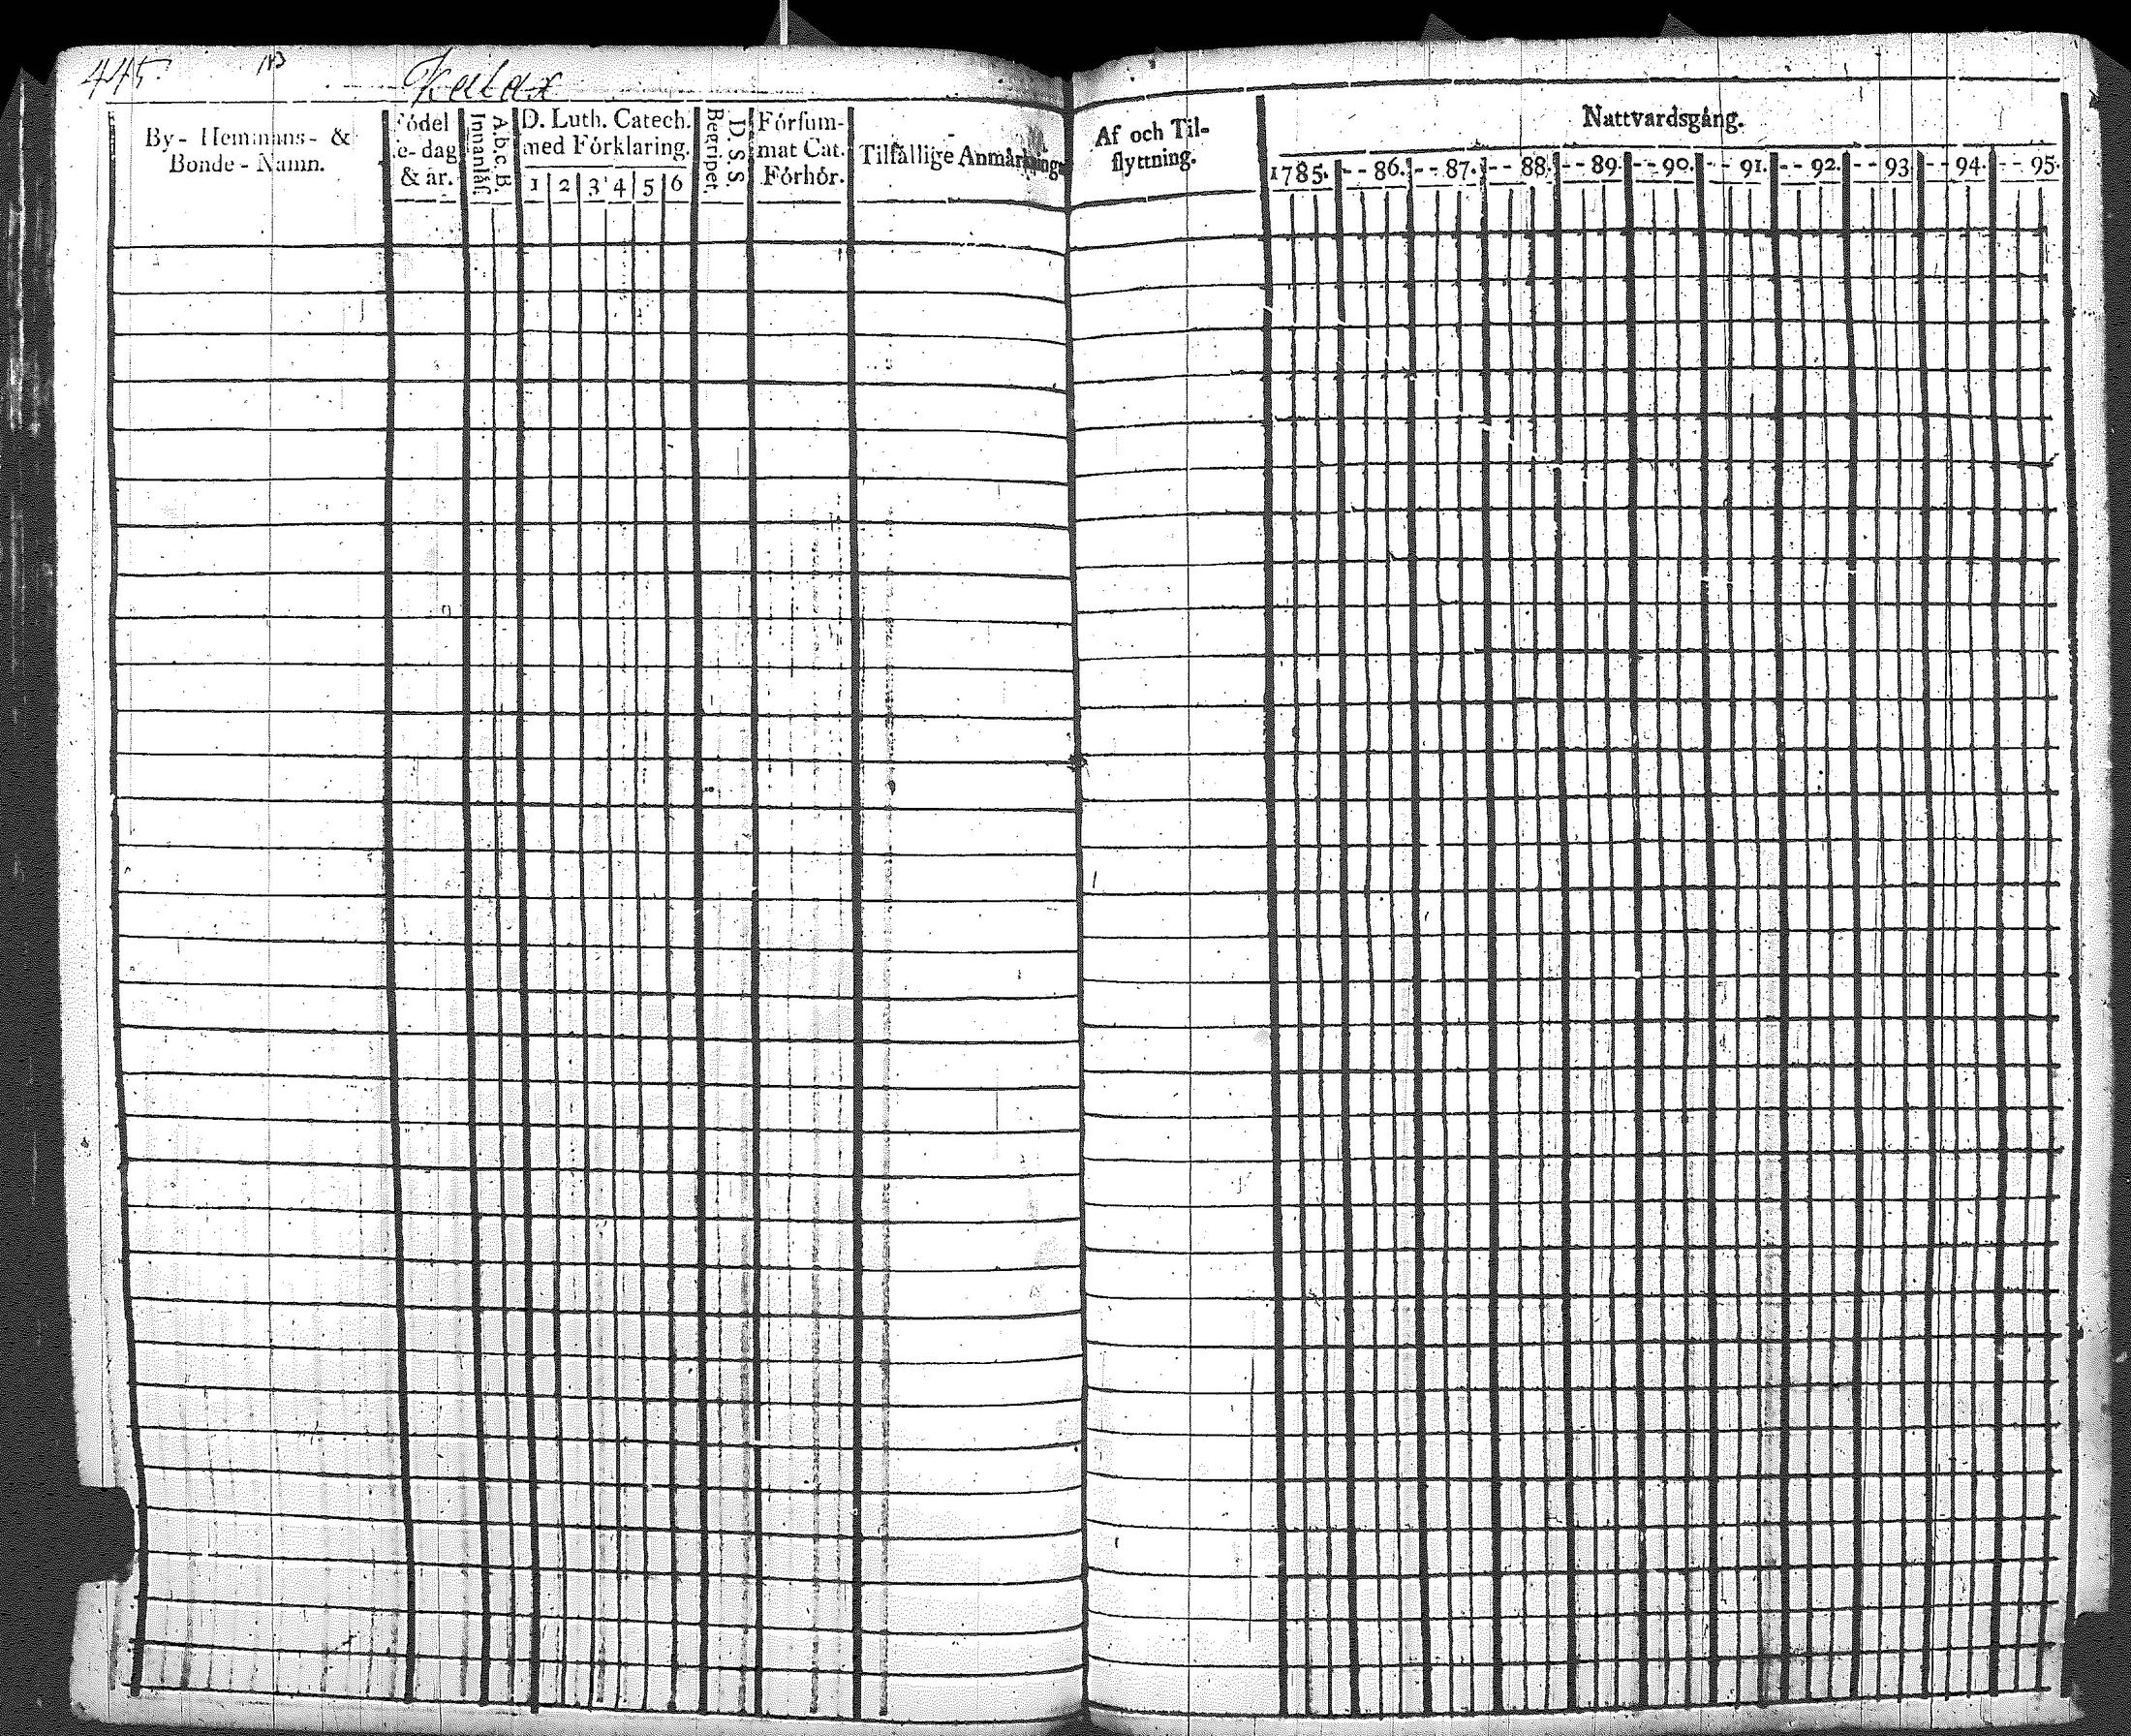 445. 183
Kalax
By- Hemmans- &
Bonde-Namn.
Födel
e-dag
& år.
Innanläs.
A. b. c. B.
D. Luth. Catech.
med Förklaring.
1 2 3 4 5 6
Begripet.
D. S. S.
Försum-
mat Cat.
Förhör.
Tilfällige Anmärkningar
Af och Til-
flyttning.
Nattvardsgång.
1785. - - 86. - - 87. - - 88. - - 89. - - 90. - - 91. - - 92. - - 93. - - 94. - - 95.